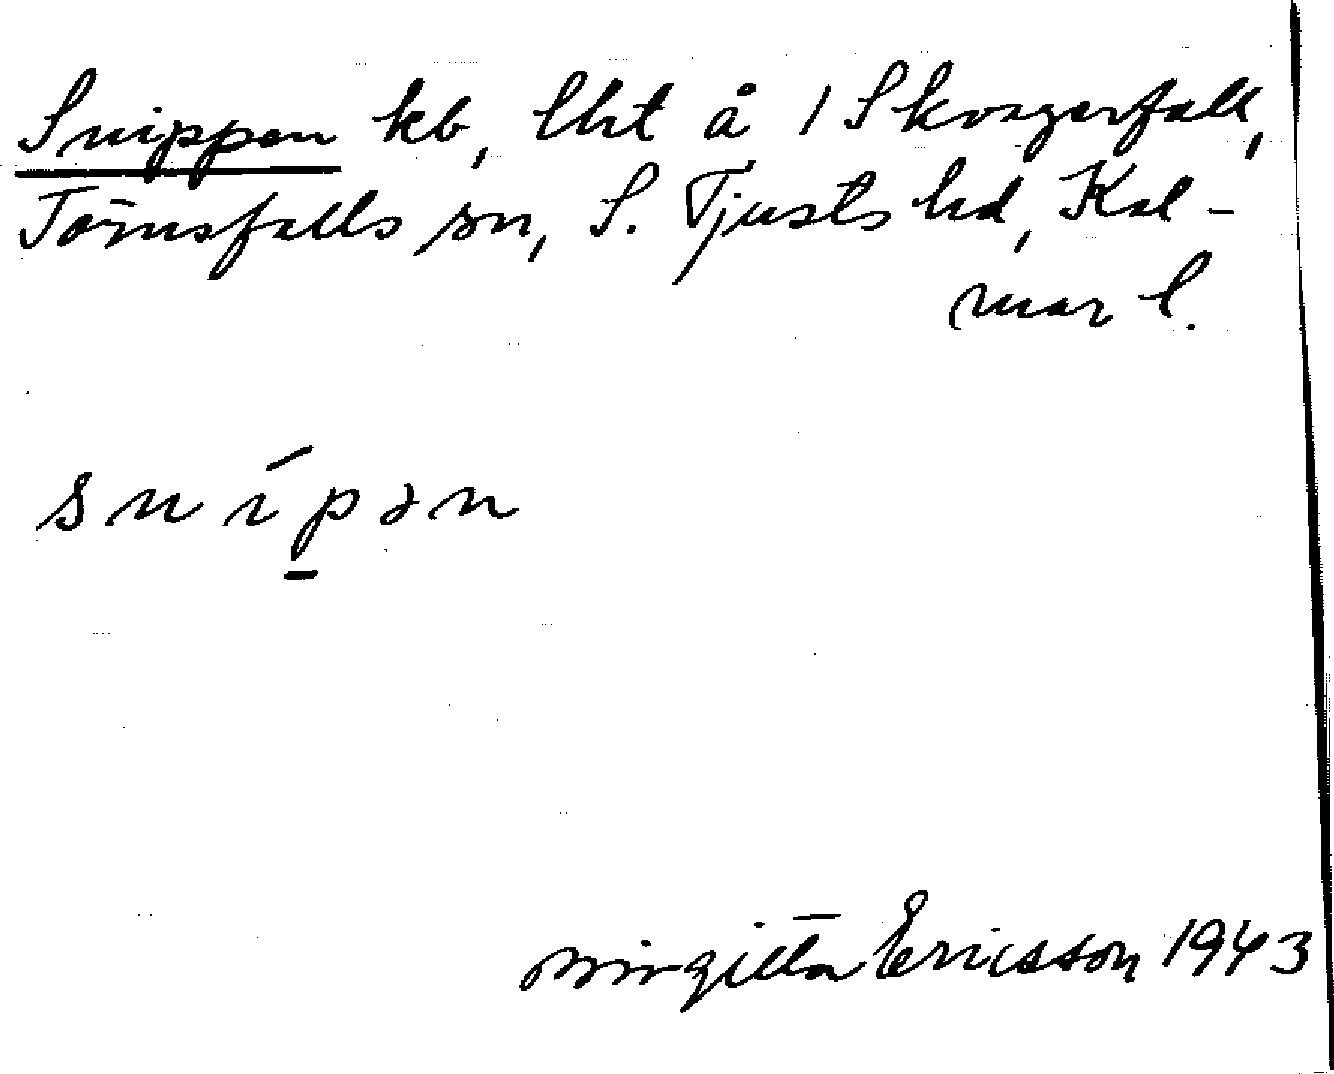 Snippen kb, lht å 1 Skvagerfall,
Törnsfalls sn, S. Tjusts hd, Kal-
mar l.
snípən
Birgitta Ericsson 1943